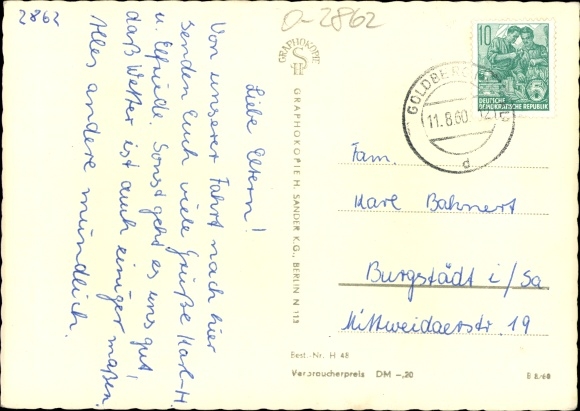 2862
D-2862
Liebe Eltern!
Von unserer Fahrt nach hier
senden Euch viele Grüße Karl-H.
u. Elfriede. Sonst geht es uns gut,
daß Wetter ist auch einiger maßen.
Alles andere mündlich.
GRAPHOKOPIE
H S
GRAPHOKOPIE H. SANDER K.G., BERLIN N 113
10
DEUTSCHE
DEMOKRATISCHE REPUBLIK
GOLDBERG
11.8.60
d
Fam.
Karl Bahnert
Burgstädt i/Sa
Mittweidaerstr. 19
Best.-Nr. H 48
Verbraucherpreis DM -.20
B 8/60